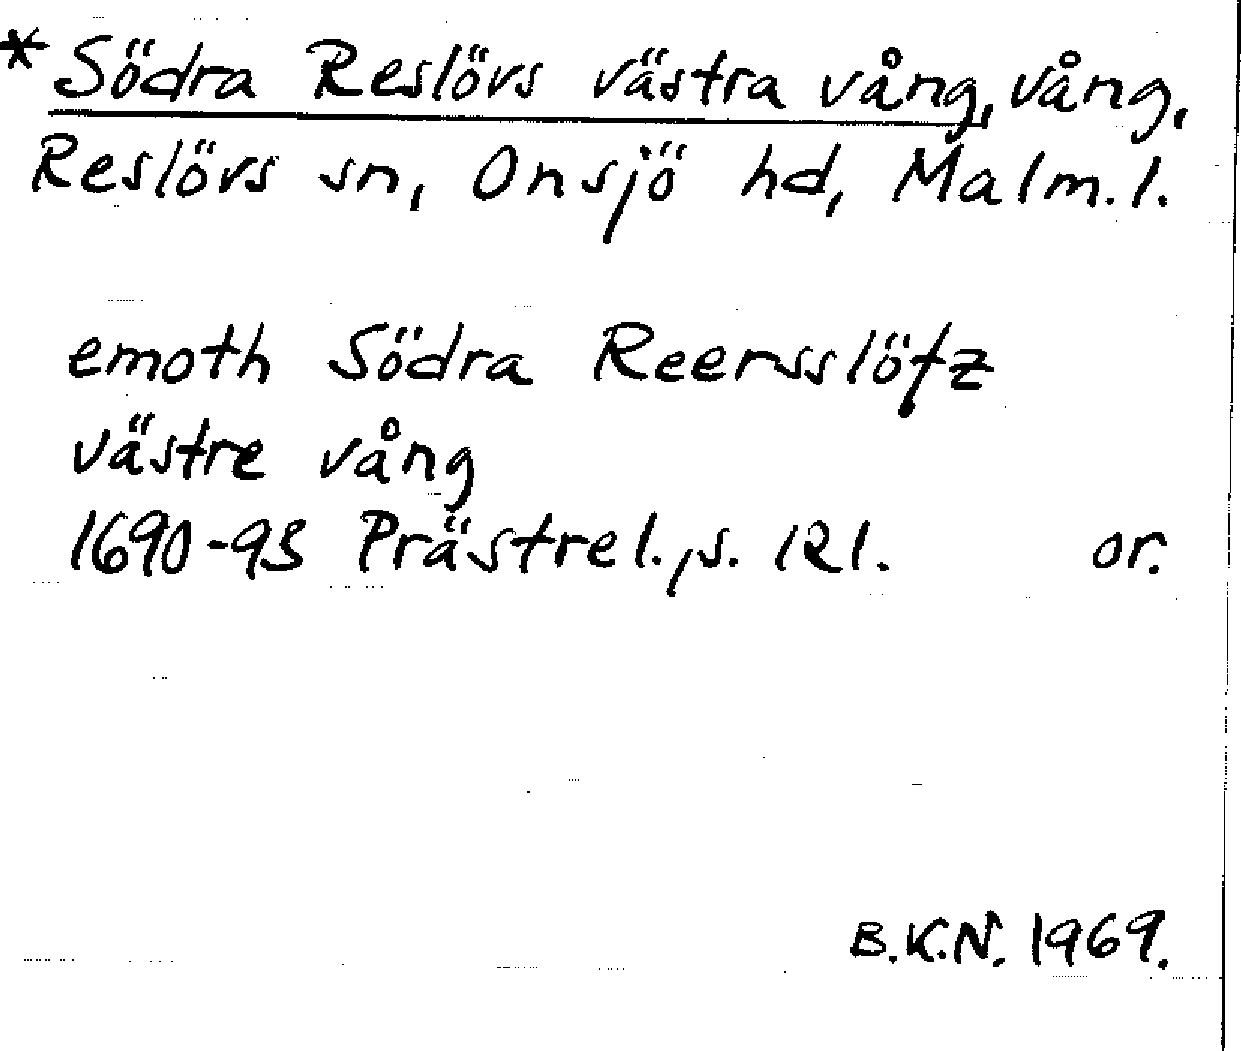 *Södra Reslövs västra vång, vång,
Reslövs sn, Onsjö hd, Malm.l.
emoth Södra Reersslöfz
västre vång
1690-93 Prästrel., s. 121. or.
B.K.N. 1969.